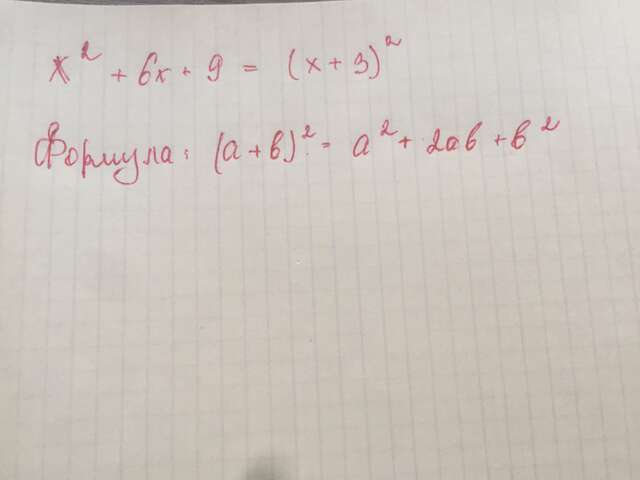 x² + 6x + 9 = (x + 3)²
Формула: (a + b)² = a² + 2ab + b²